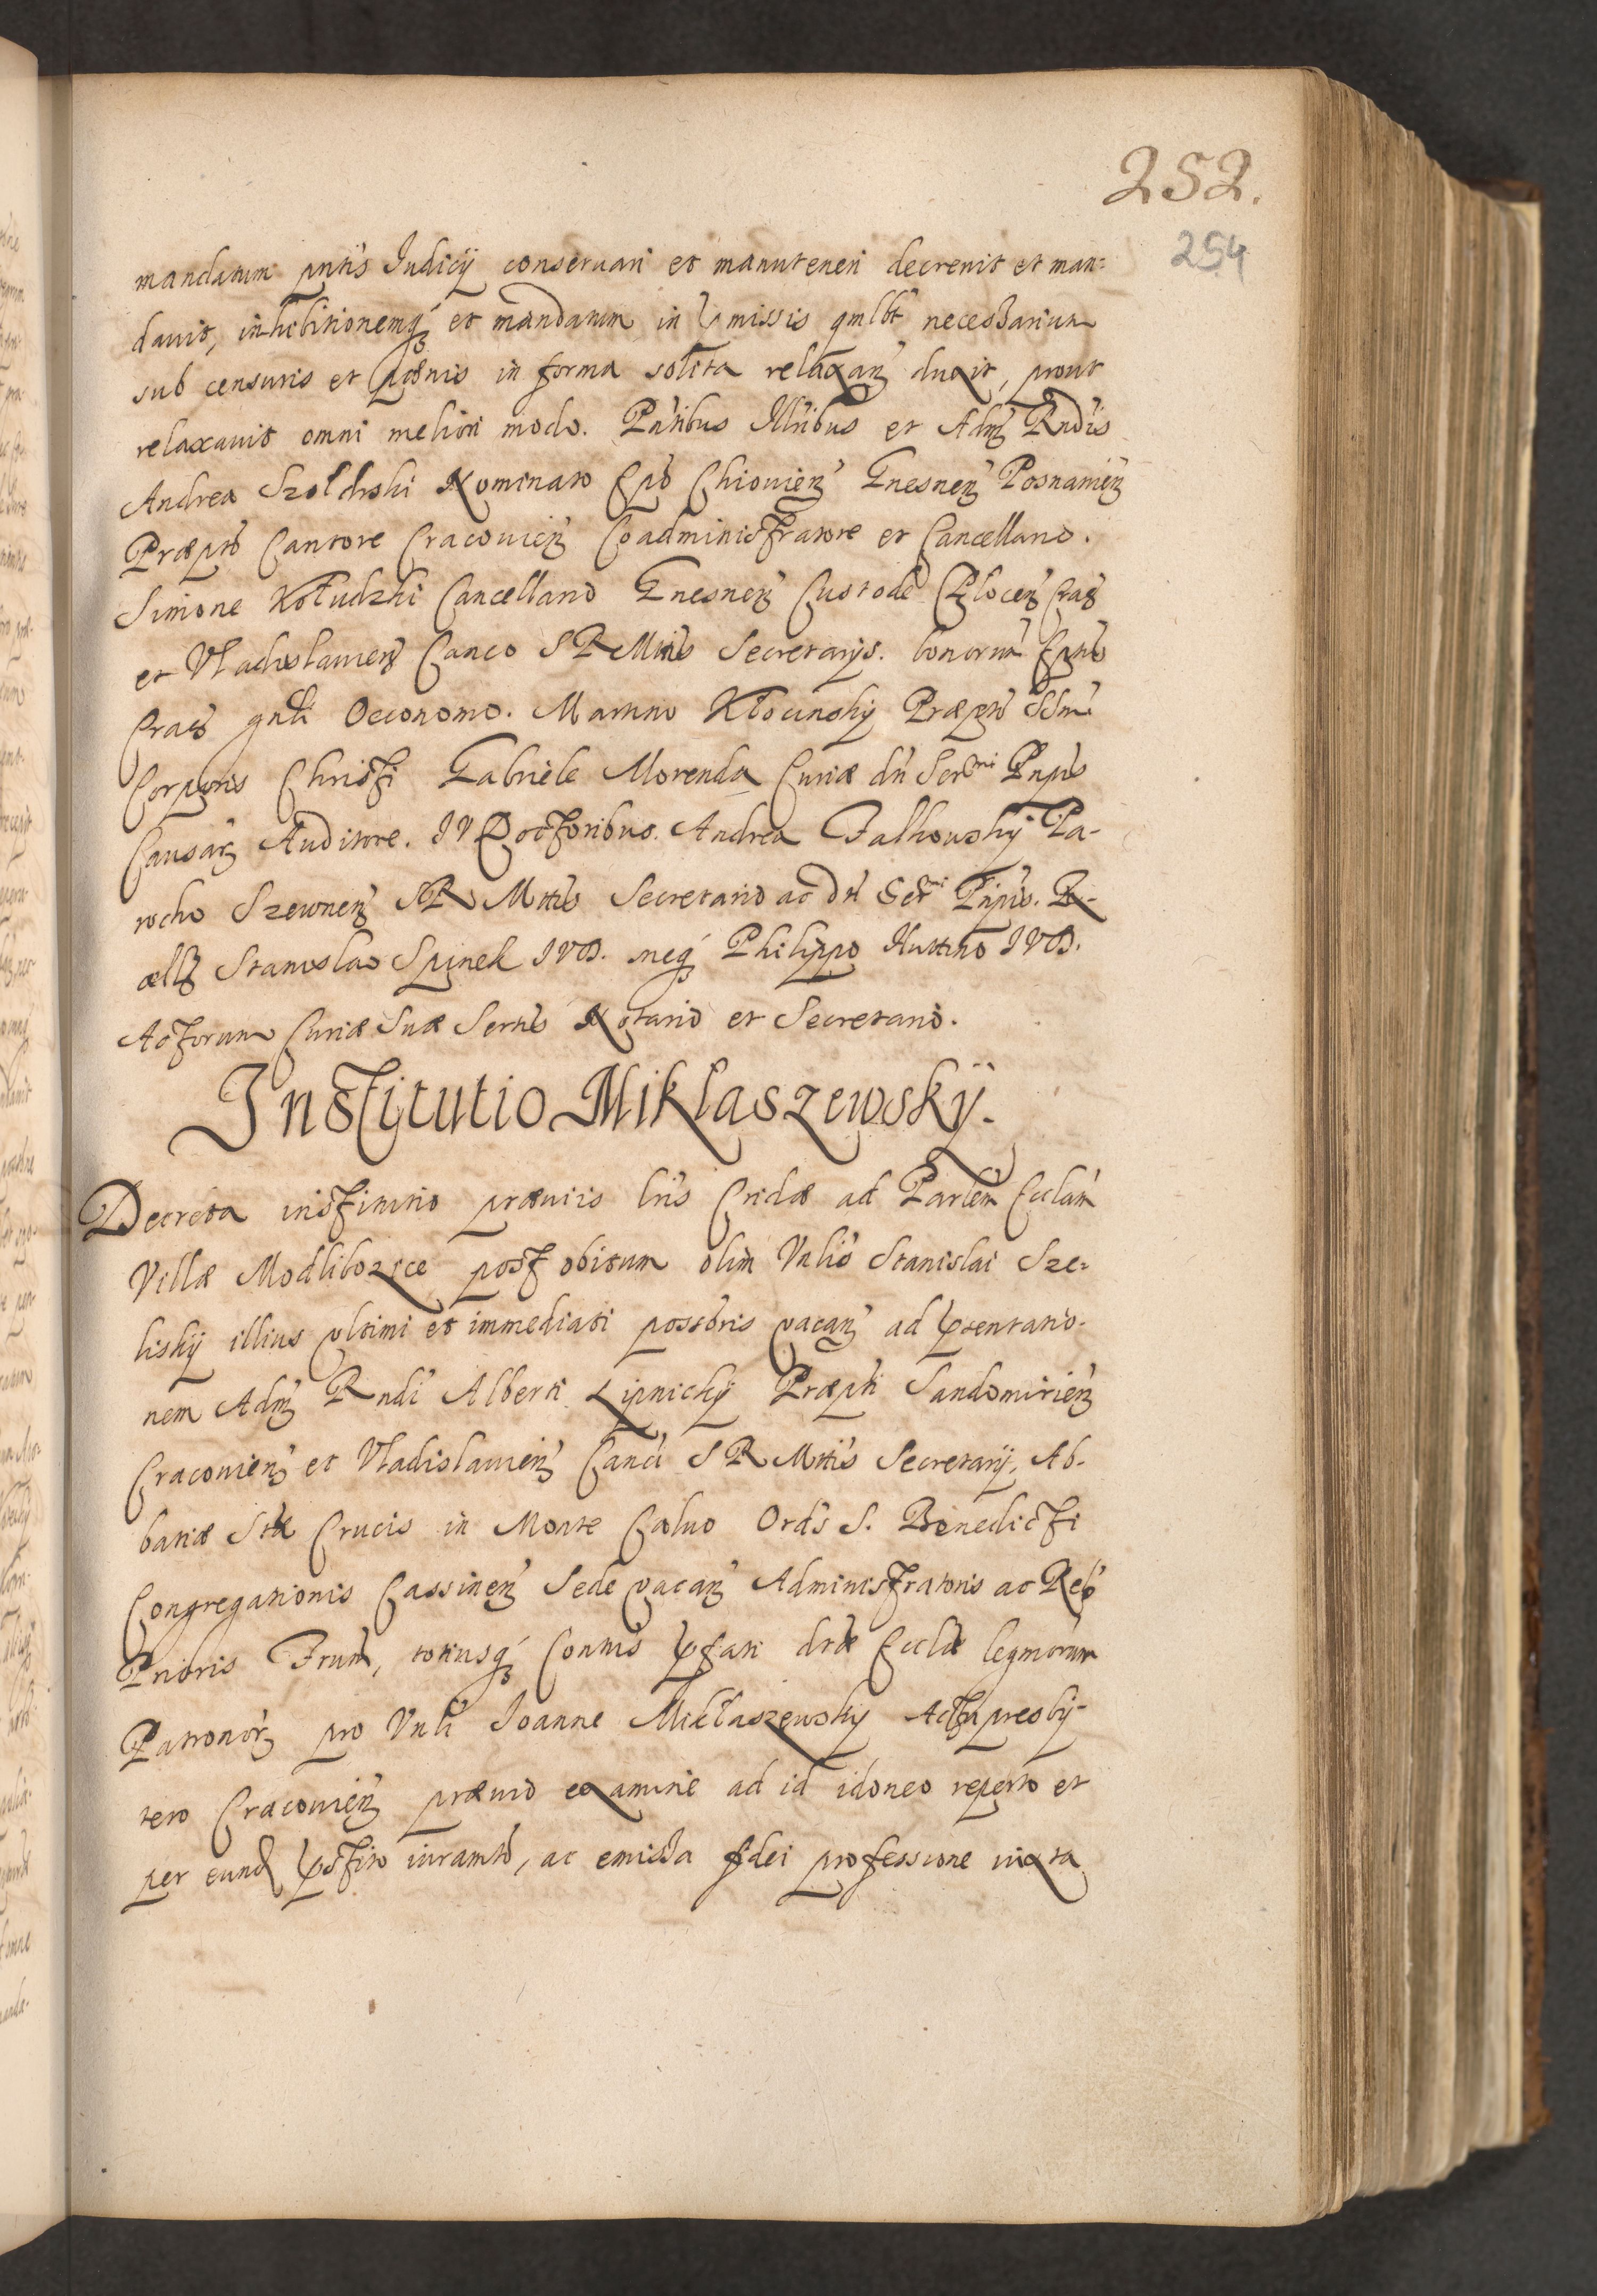 252.
254
mandatum pntis Judicij conseruari et manuteneri decreuit et man=
dauit, inhibitionemq́ꝫ et mandatum in p̱missis qmlbt necessarium
sub censuris et pœnis in forma solita relaxanꝫ duxit, prout
relaxauit omni meliori modo. Pn̄tibus Illribus et Admꝫ Rndis
Andrea Szoldrski Nominato Epō Chiouienꝫ Gnesnenꝫ Posnanienꝫ
Præptō Cantore Cracouienꝫ Coadministratore et Cancellario.
Simone Kołudzki Cancellario Gnesnenꝫ Custode Plocenꝫ Cracꝫ
et Vladislauienꝫ Canco S R Mttis Secretarijs. bonorum Eptus
Cracꝫ gnli Oeconomo. Martino Kłocinskij Præpto SSmi
Corporis Christi Gabriele Morenda Curiæ dn̄ Sermi Pnpis
Causarꝫ Auditore. IV Doctoribus. Andrea Falkouskij Pa-
rocho Szewnenꝫ S R Mttis Secretario ac dn̄ Sermi Pnpis.
Stanislao Spinek IVD. meq́ꝫ Philippo Huttino IVD.
Actorum Curiæ Suæ Sertis Notario et Secretario.
Institutio Miklaszewskÿ.
Decreta institutio præuiis lris Cridæ ad Parlem Ecclam
Villæ Modliborzice post obitum olim Vnlis Stanislai Sze-
liskij illius vltimi et immediati possoris vacanꝫ ad p̱sentatio-
nem Admꝫ Rndi Alberti Lipnickij Præpti Sandomirienꝫ
Cracouienꝫ et Vladislauienꝫ Canci S R Mttis Secretarij, Ab-
batiæ Stæ Crucis in Monte Caluo Ordis S. Benedicti
Congregationis Cassinenꝫ Sede vacanꝫ Administratoris ac Relꝰ
Prioris Frum, totiusq́ꝫ Contus p̱fati dictæ Ecclæ legmorum
Patronorꝫ pro Vnli Joanne Miklaszewskij presbÿ-
tero Cracouienꝫ præuio examine ad id idoneo reperto et
per eundꝫ p̱stito iuramto, ac emissa fidei professione iuxta